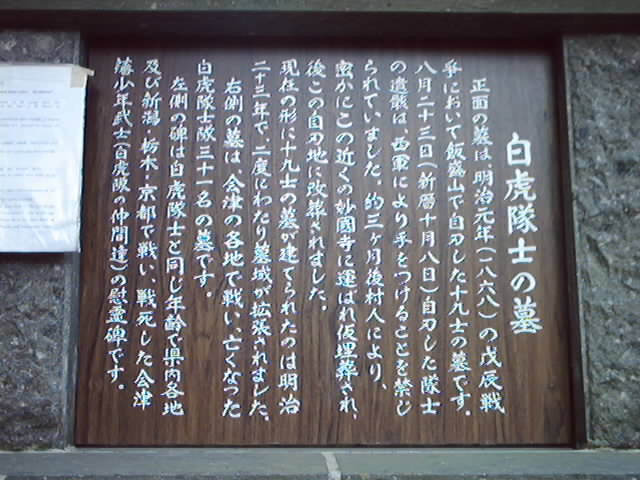 白虎隊士の墓
正面の墓は、明治元年(一八六八)の戊辰戦
争において飯盛山で自刃した十九士の墓です。
八月二十三日(新暦十月八日)自刃した隊士
の遺骸は、西軍により手をつけることを禁じ
られていました。約三ヶ月後村人により、
密かにこの近くの妙國寺に運ばれ仮埋葬され、
後この自刃地に改葬されました。
現在の形に十九士の墓が建てられたのは明治
二十三年で、二度にわたり墓域が拡張されました。
右側の墓は、会津の各地で戦い、亡くなった
白虎隊士隊三十一名の墓です。
左側の碑は白虎隊士と同じ年齢で県内各地
及び新潟・栃木・京都で戦い、戦死した会津
藩少年武士(白虎隊の仲間達)の慰霊碑です。